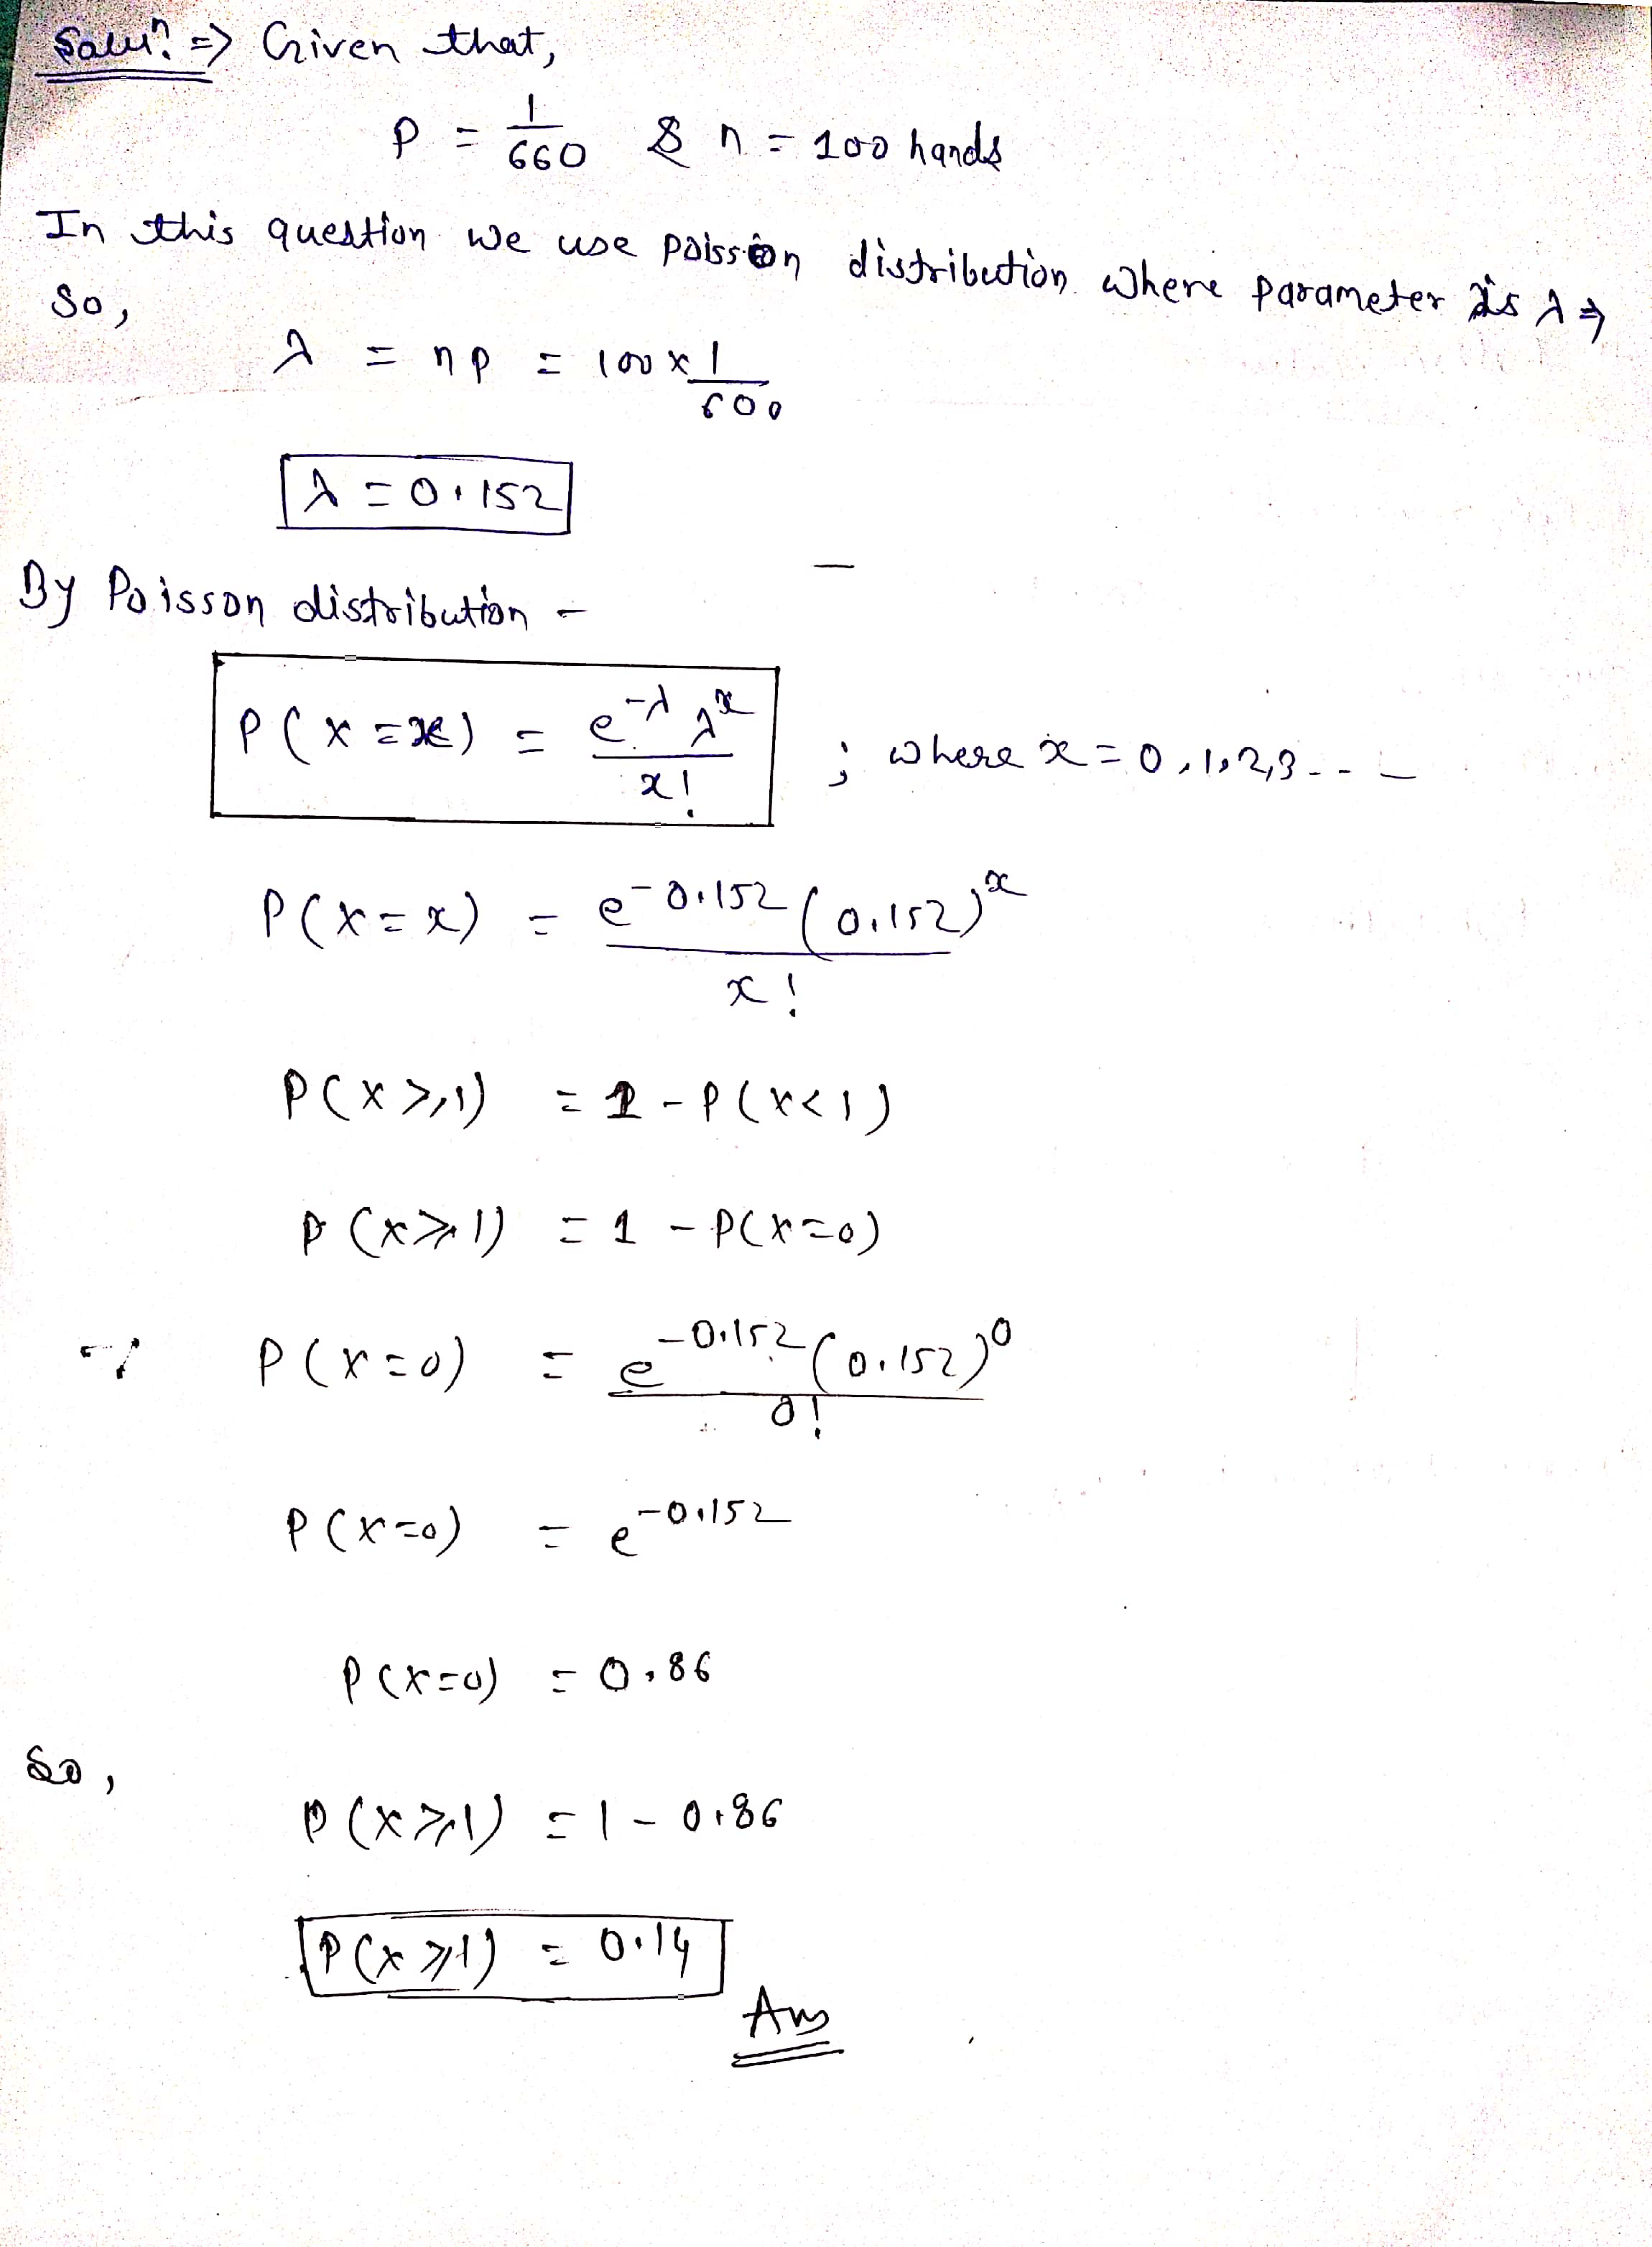 Solun. => Given that,
P = 1/660 & n = 100 hands
In this question we use poission distribution where parameter is λ ⇒
So,
λ = np = 100 × 1/600
λ = 0.152
By Poisson distribution -
P(X = x) = e^-λ λ^x / x! ; where x = 0,1,2,3 - - -
P(X = x) = e^-0.152 (0.152)^x / x!
P(X ≥ 1) = 1 - P(X < 1)
P(X ≥ 1) = 1 - P(X=0)
∵ P(X=0) = e^-0.152 (0.152)^0 / 0!
P(X=0) = e^-0.152
P(X=0) = 0.86
So,
P(X ≥ 1) = 1 - 0.86
P(X ≥ 1) = 0.14
Ans